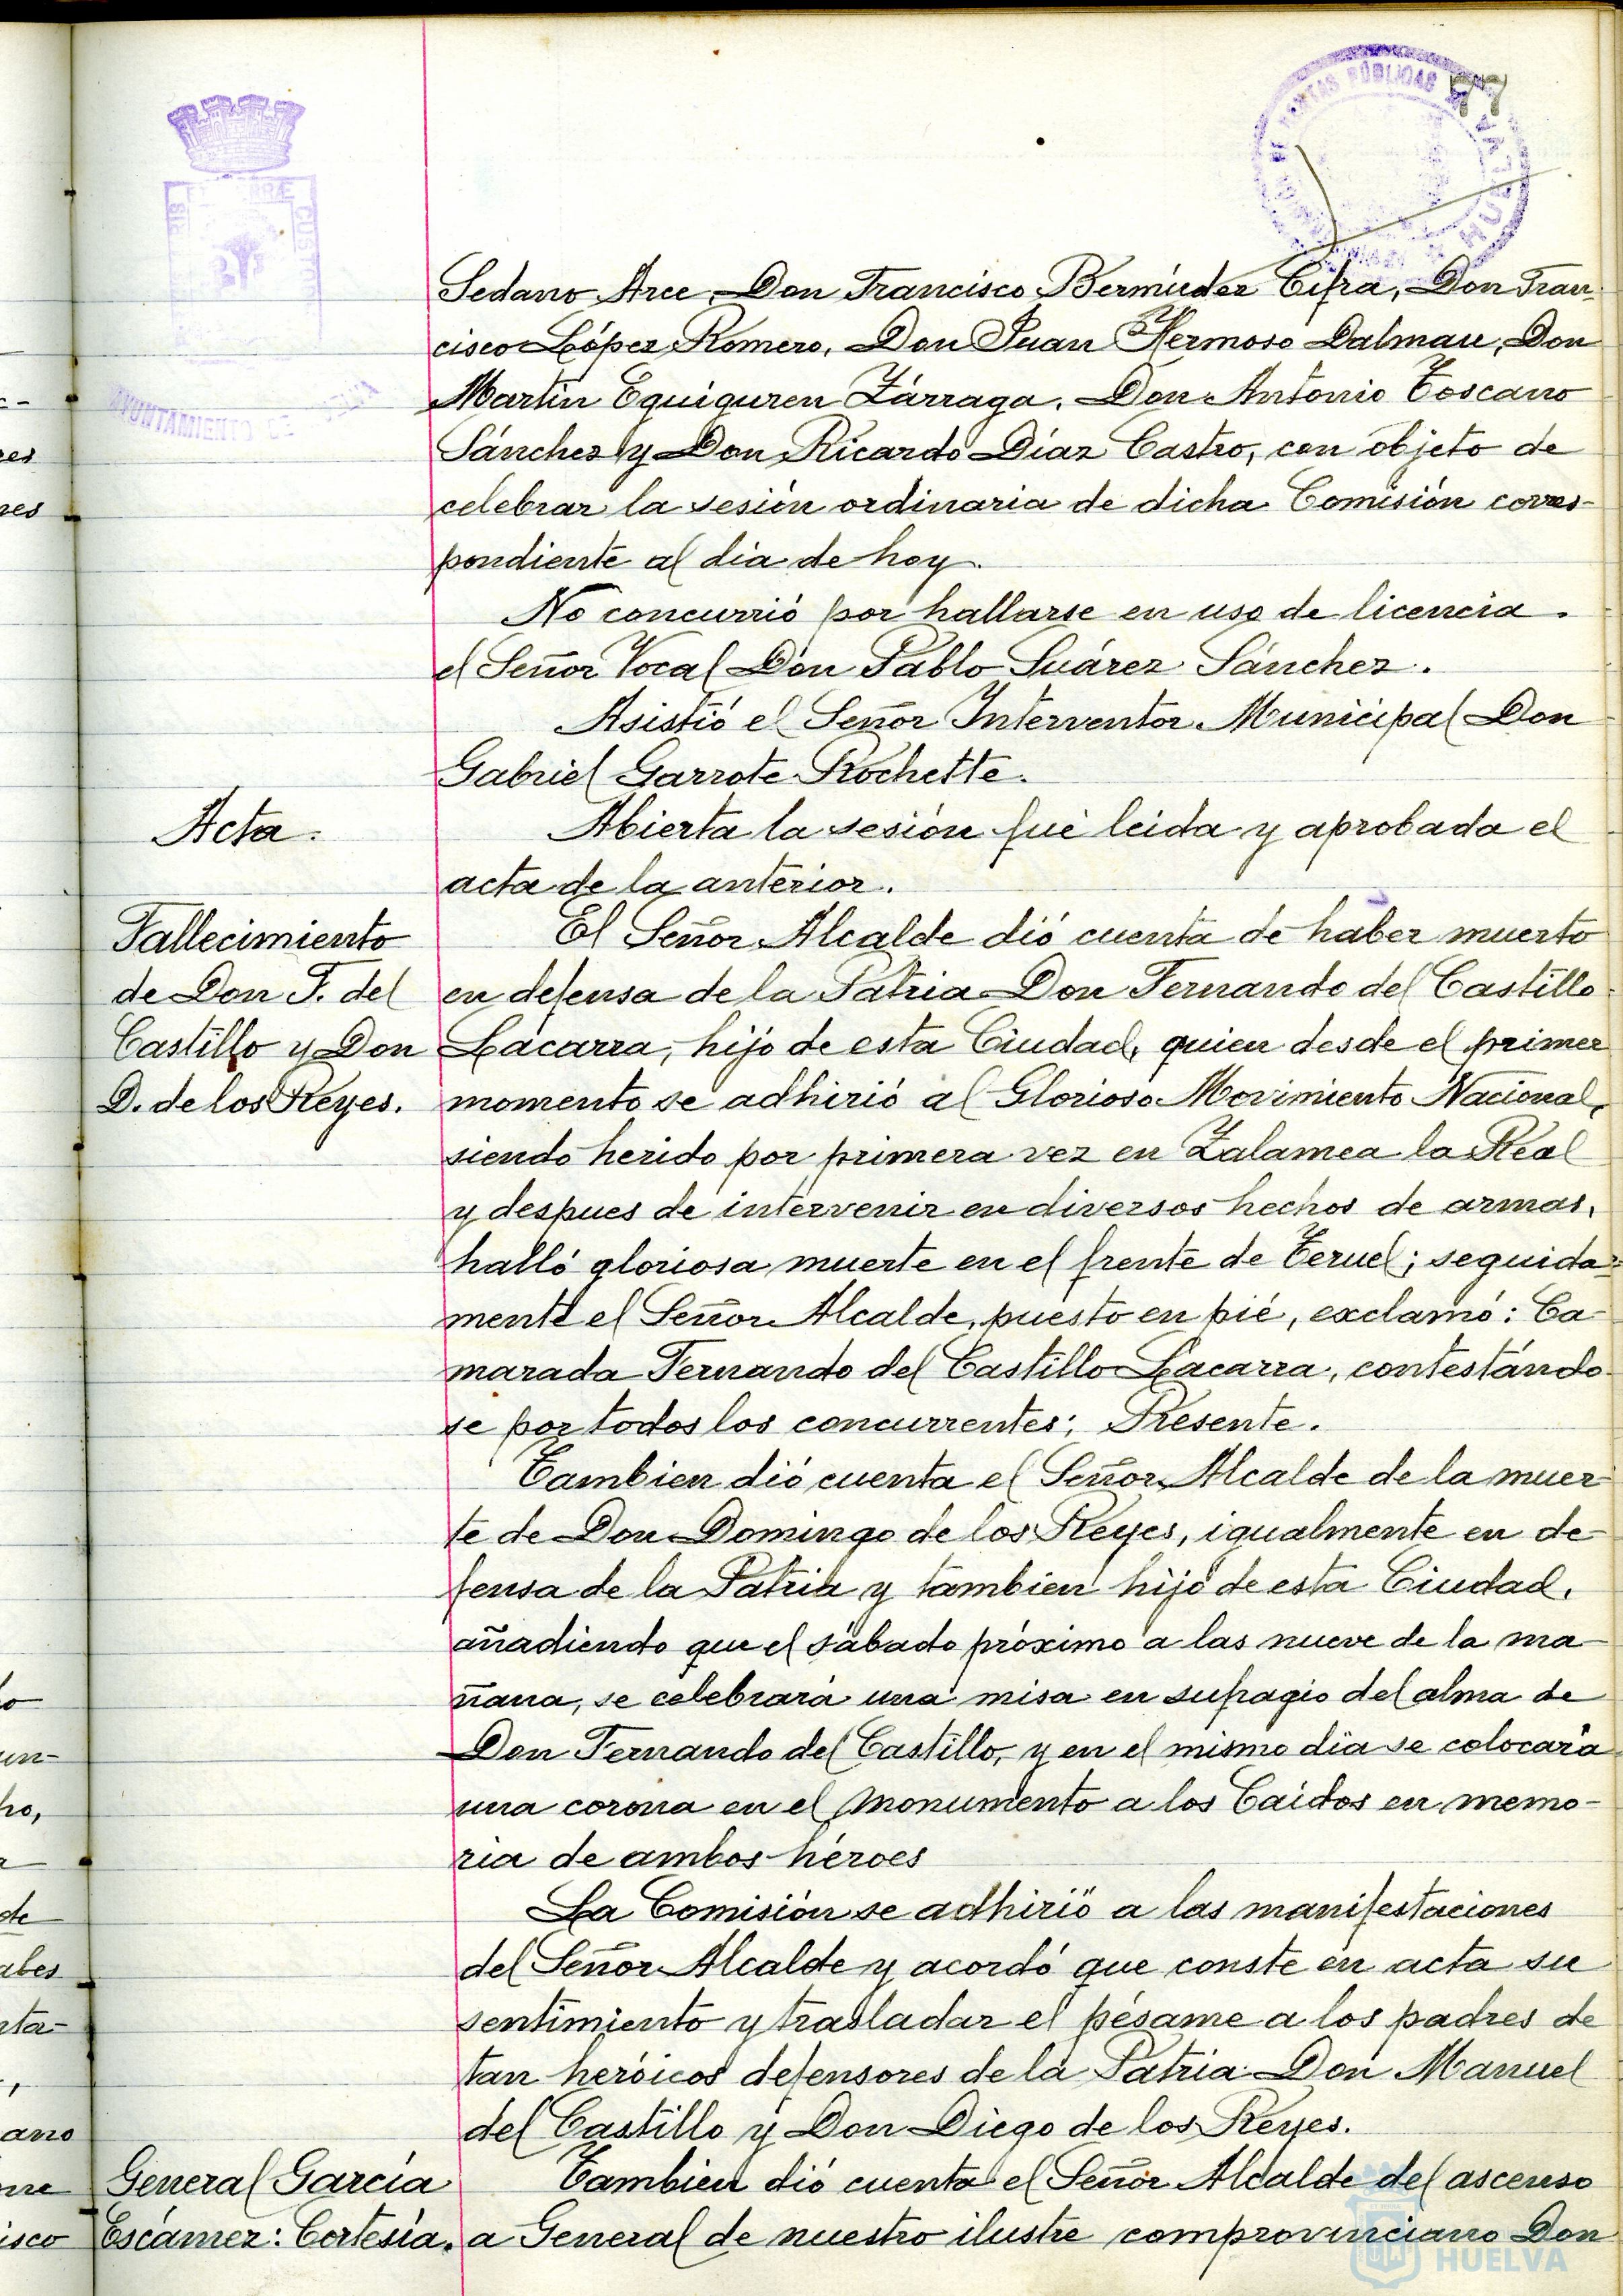 77
PORTAS PUBLICAS
HUELVA
AYUNTAMIENTO DE
Sedano Arce, Don Francisco Bermúdez Cifra, Don Fran-
cisco López Romero, Don Juan Hermoso Dalmau, Don
Martín Eguiguren Zárraga, Don Antonio Toscano
Sánchez y Don Ricardo Díaz Castro, con objeto de
celebrar la sesión ordinaria de dicha Comisión corres-
pondiente al dia de hoy.
No concurrió por hallarse en uso de licencia
el Señor Vocal Don Pablo Suárez Sánchez.
Asistió el Señor Interventor Municipal Don
Gabriel Garrote Rochette.
Acta.
Abierta la sesión fué leida y aprobada el
acta de la anterior.
Fallecimiento
de Don F. del
Castillo y Don
D. de los Reyes.
El Señor Alcalde dió cuenta de haber muerto
en defensa de la Patria Don Fernando del Castillo
Lacarra, hijo de esta Ciudad, quien desde el primer
momento se adhirió al Glorioso Movimiento Nacional,
siendo herido por primera vez en Zalamea la Real
y despues de intervenir en diversos hechos de armas,
halló gloriosa muerte en el frente de Teruel; seguida-
mente el Señor Alcalde, puesto en pié, exclamó: Ca-
marada Fernando del Castillo Lacarra, contestándo-
se por todos los concurrentes; Presente.
Tambien dió cuenta el Señor Alcalde de la muer-
te de Don Domingo de los Reyes, igualmente en de-
fensa de la Patria y tambien hijo de esta Ciudad,
añadiendo que el sábado próximo a las nueve de la ma-
ñana, se celebrará una misa en sufragio del alma de
Don Fernando del Castillo, y en el mismo dia se colocará
una corona en el Monumento a los Caidos en memo-
ria de ambos héroes
La Comisión se adhirió a las manifestaciones
del Señor Alcalde y acordó que conste en acta su
sentimiento y trasladar el pésame a los padres de
tan heróicos defensores de la Patria Don Manuel
del Castillo y Don Diego de los Reyes.
General García
Escámez: Cortesía.
Tambien dió cuenta el Señor Alcalde del ascenso
a General de nuestro ilustre comprovinciano Don
HUELVA